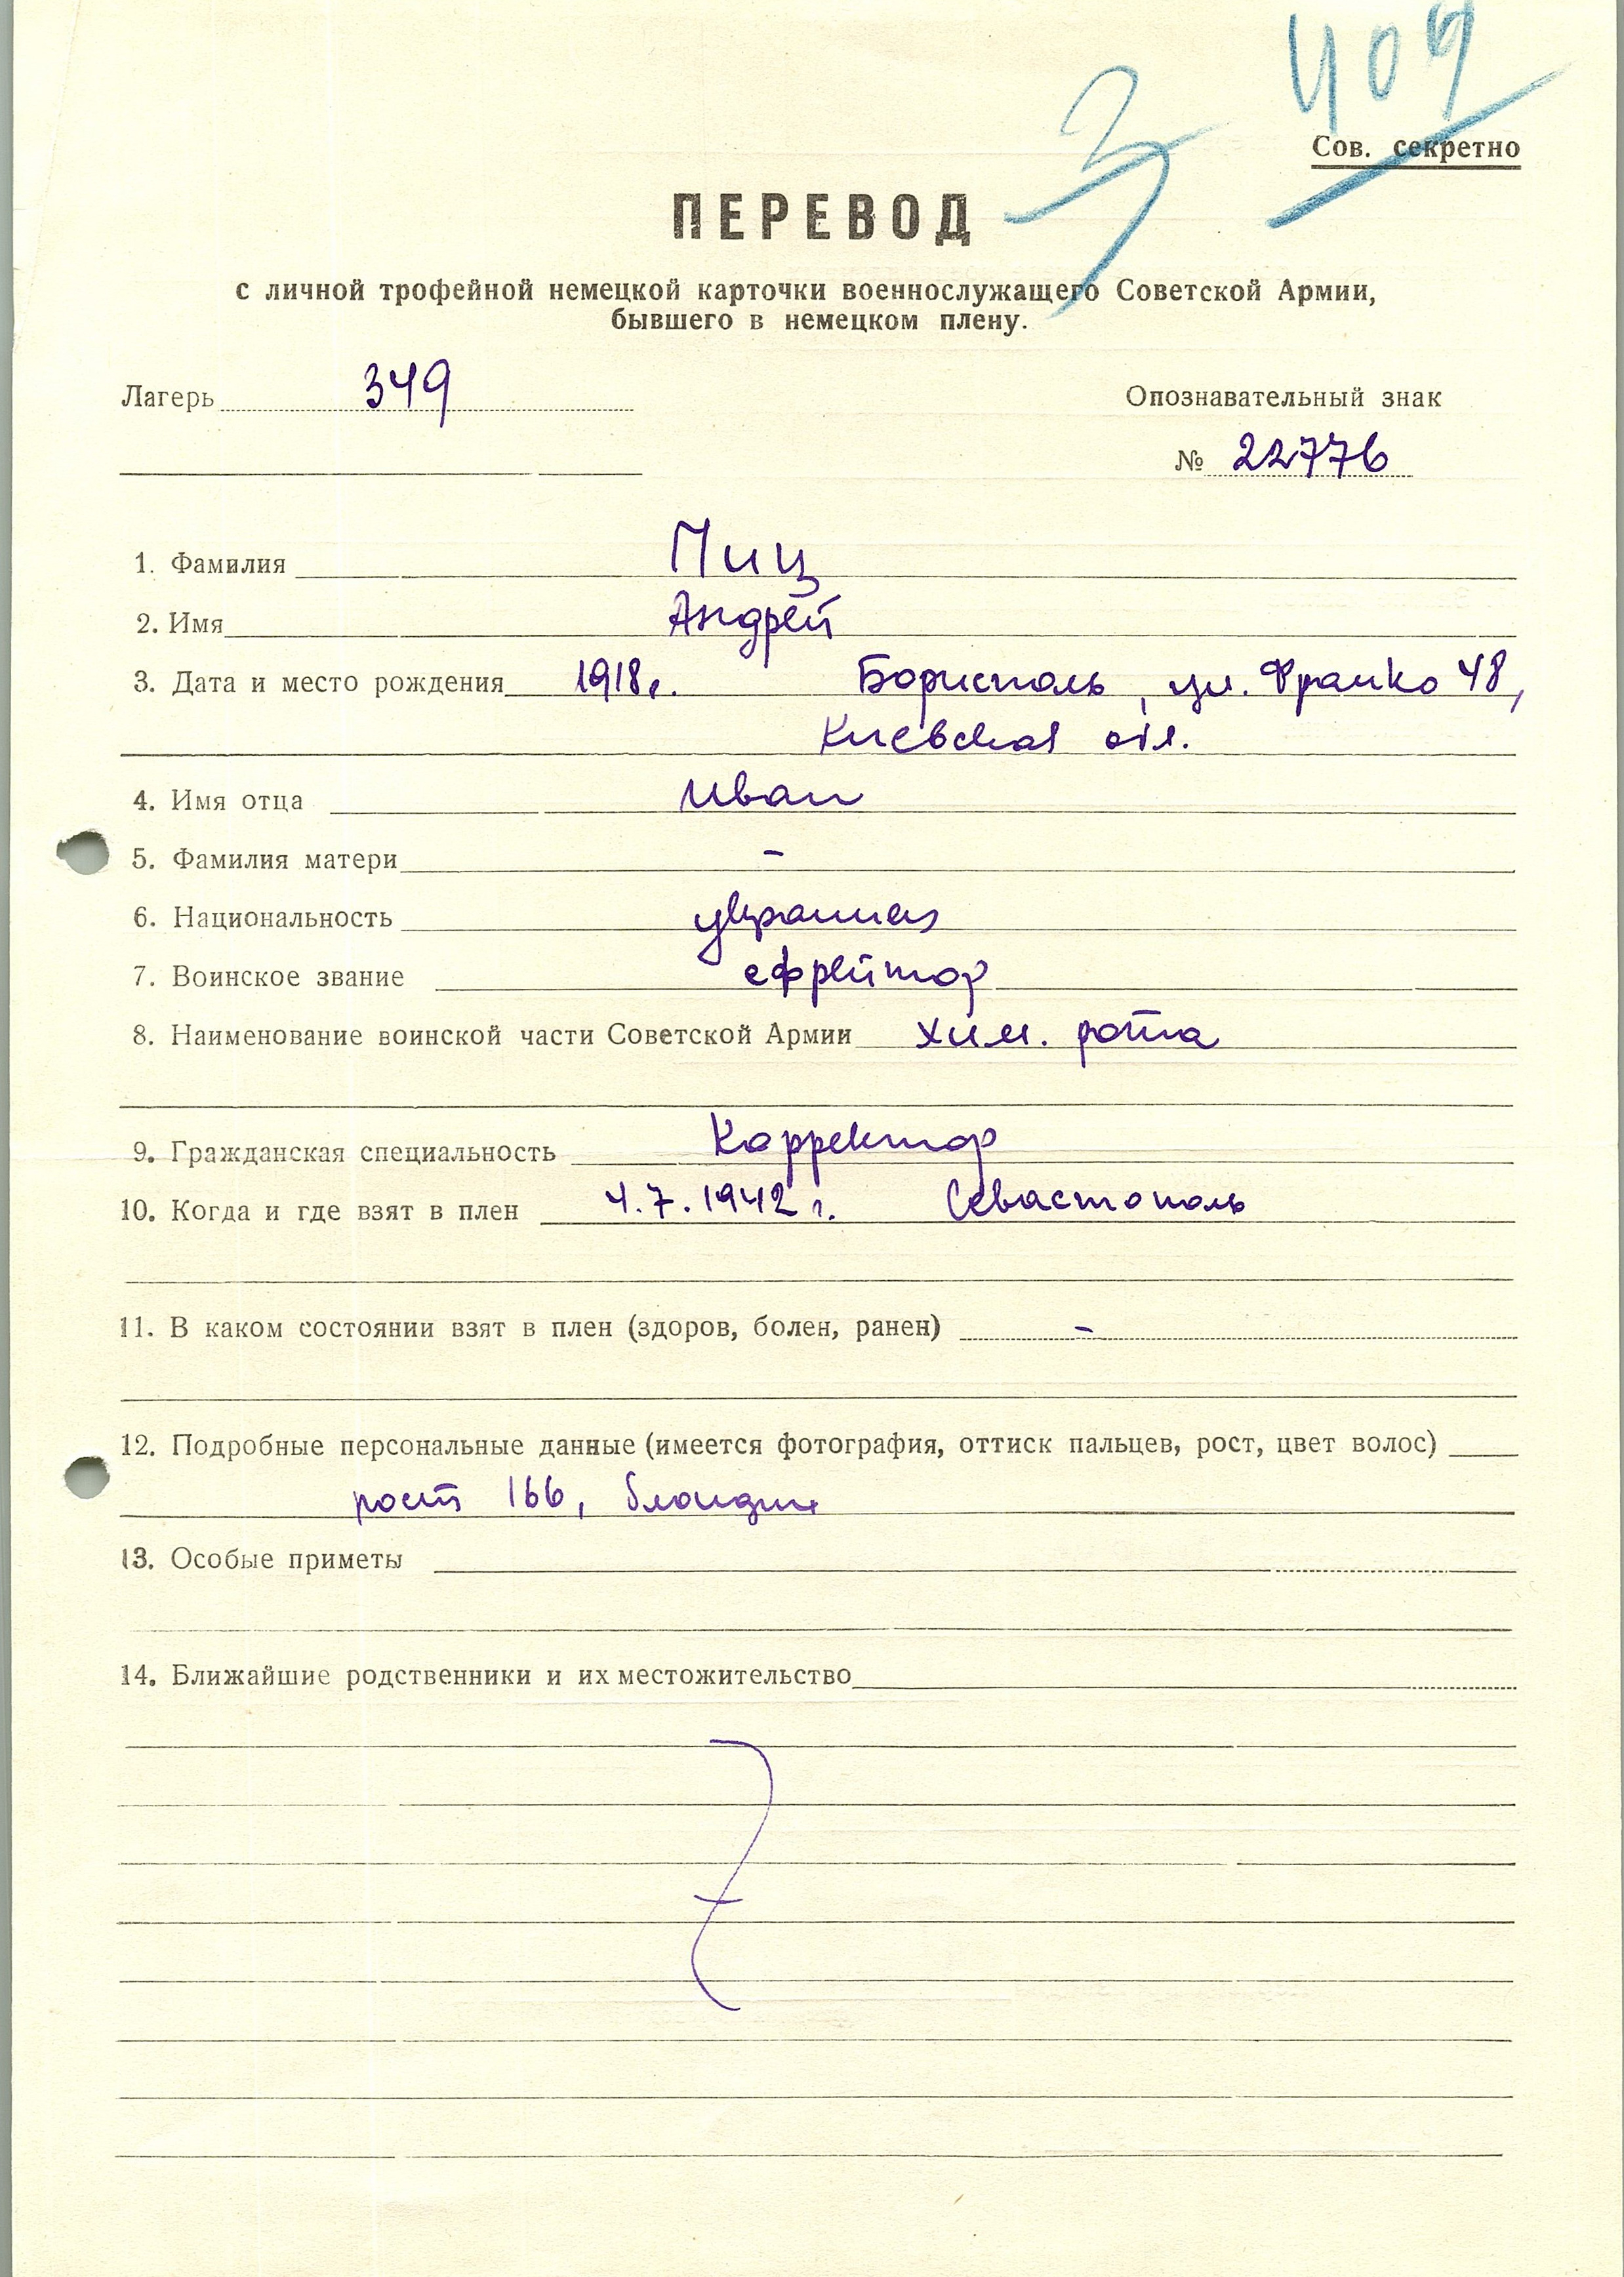 409
3
Сов. секретно
ПЕРЕВОД
с личной трофейной немецкой карточки военнослужащего Советской Армии,
бывшего в немецком плену.
Лагерь 349 Опознавательный знак
№ 22776
1. Фамилия Пиц
2. Имя Андрей
3. Дата и место рождения 1918г. Борисполь, ул. Франко 48,
Киевская обл.
4. Имя отца Иван
5. Фамилия матери -
6. Национальность украинец
7. Воинское звание ефрейтор
8. Наименование воинской части Советской Армии хим. рота
9. Гражданская специальность Корректор
10. Когда и где взят в плен 4.7.1942 г. Севастополь
11. В каком состоянии взят в плен (здоров, болен, ранен) -
12. Подробные персональные данные (имеется фотография, оттиск пальцев, рост, цвет волос)
рост 166, блондин
13. Особые приметы
14. Ближайшие родственники и их местожительство